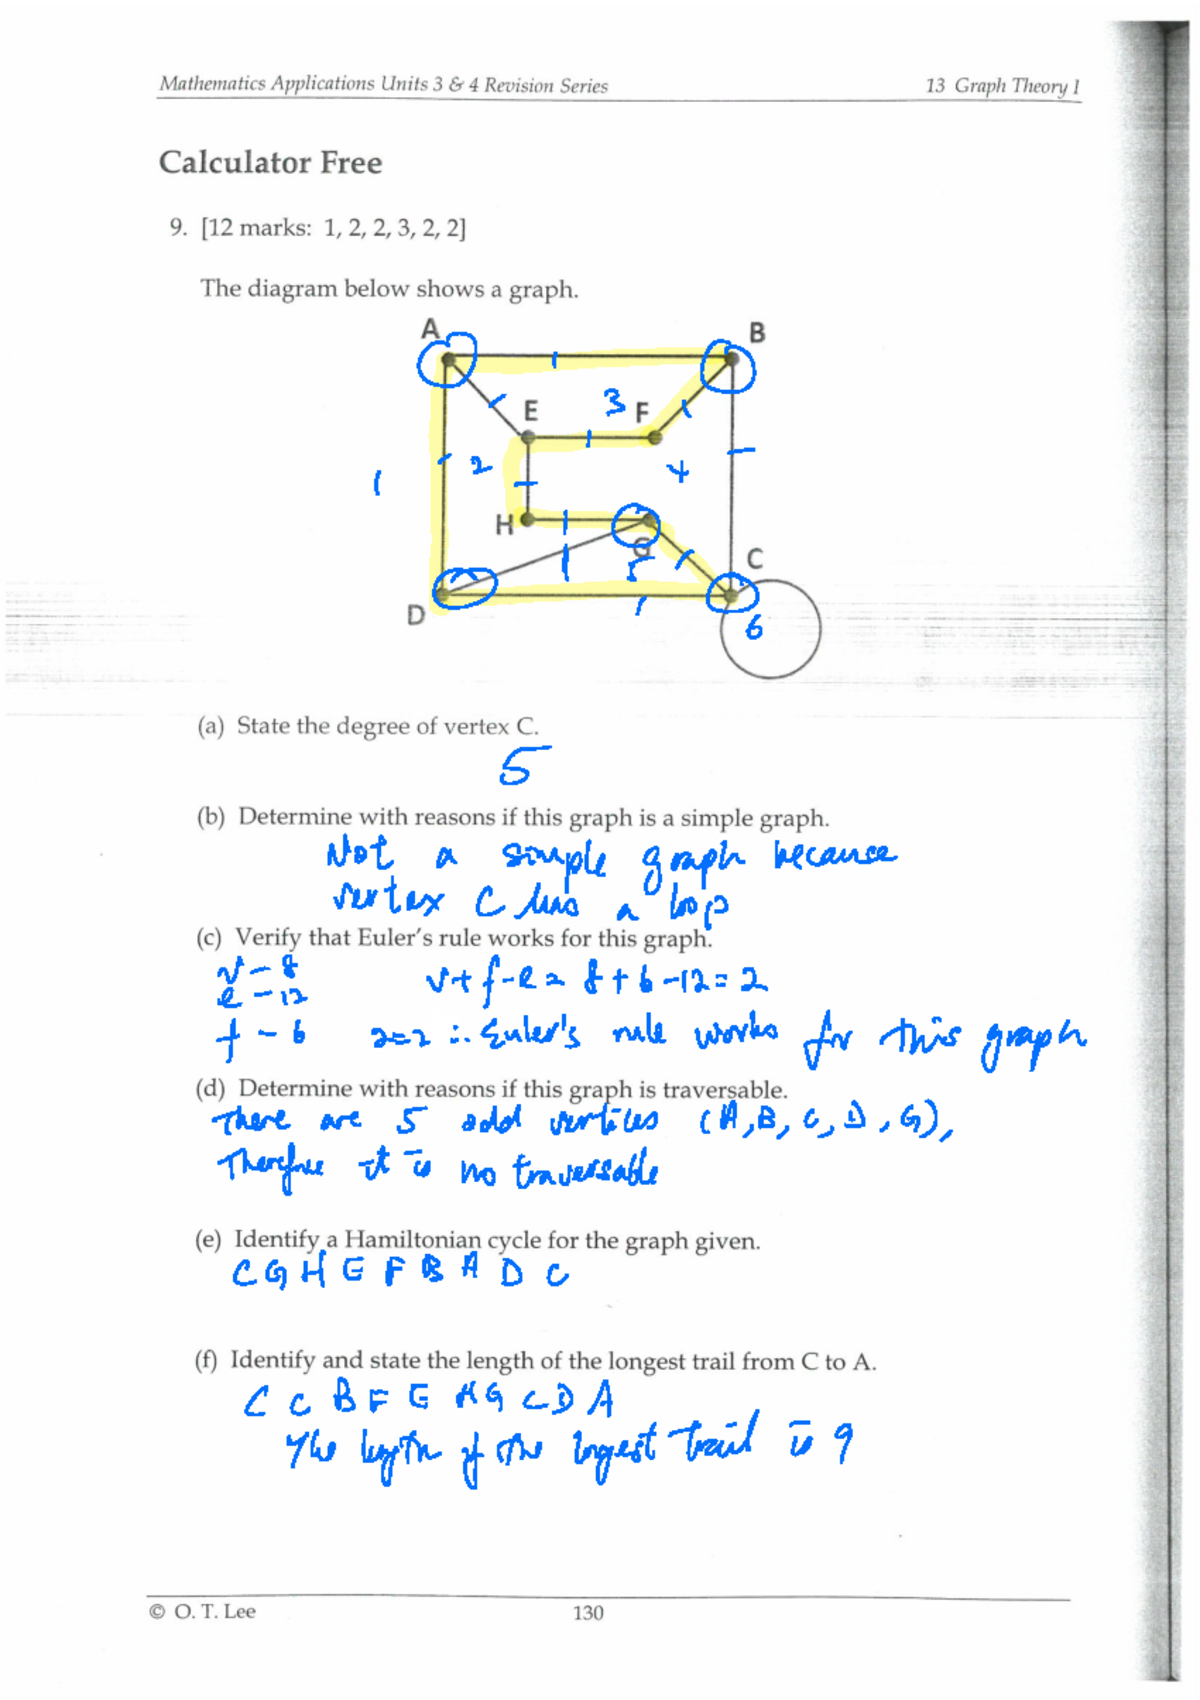 Mathematics Applications Units 3 & 4 Revision Series 13 Graph Theory I
Calculator Free
9. [12 marks: 1, 2, 2, 3, 2, 2]
The diagram below shows a graph.
A B
E 3 F
1 2 4
H G
5 C
D 6
(a) State the degree of vertex C.
5
(b) Determine with reasons if this graph is a simple graph.
Not a simple graph because
vertex C has a loop
(c) Verify that Euler's rule works for this graph.
v - 8 v + f - e = 8 + 6 - 12 = 2
e - 12
f - 6 2=2 ∴ Euler's rule works for this graph
(d) Determine with reasons if this graph is traversable.
There are 5 odd vertices (A, B, C, D, G),
Therefore it is no traversable
(e) Identify a Hamiltonian cycle for the graph given.
C G H E F B A D C
(f) Identify and state the length of the longest trail from C to A.
C C B F E H G C D A
The length of the longest trail is 9
© O. T. Lee 130